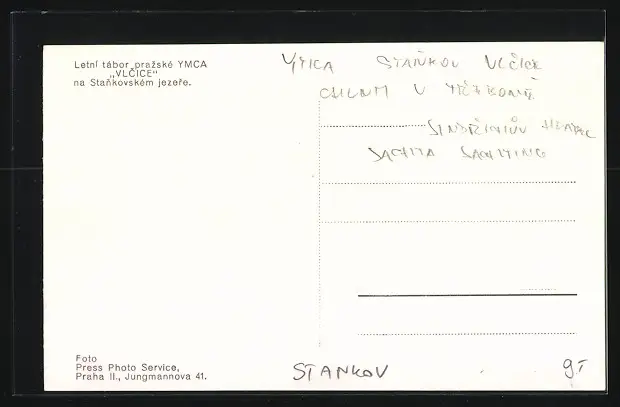 Letní tábor pražské YMCA
„VLČICE"
na Staňkovském jezeře.
YMCA STAŇKOV VLČICE
CHLUM U TŘEBONĚ
JINDŘICHŮV HRADEC
JACHTA JACHTING
Foto
Press Photo Service,
Praha II., Jungmannova 41.
STANKOV
9,-